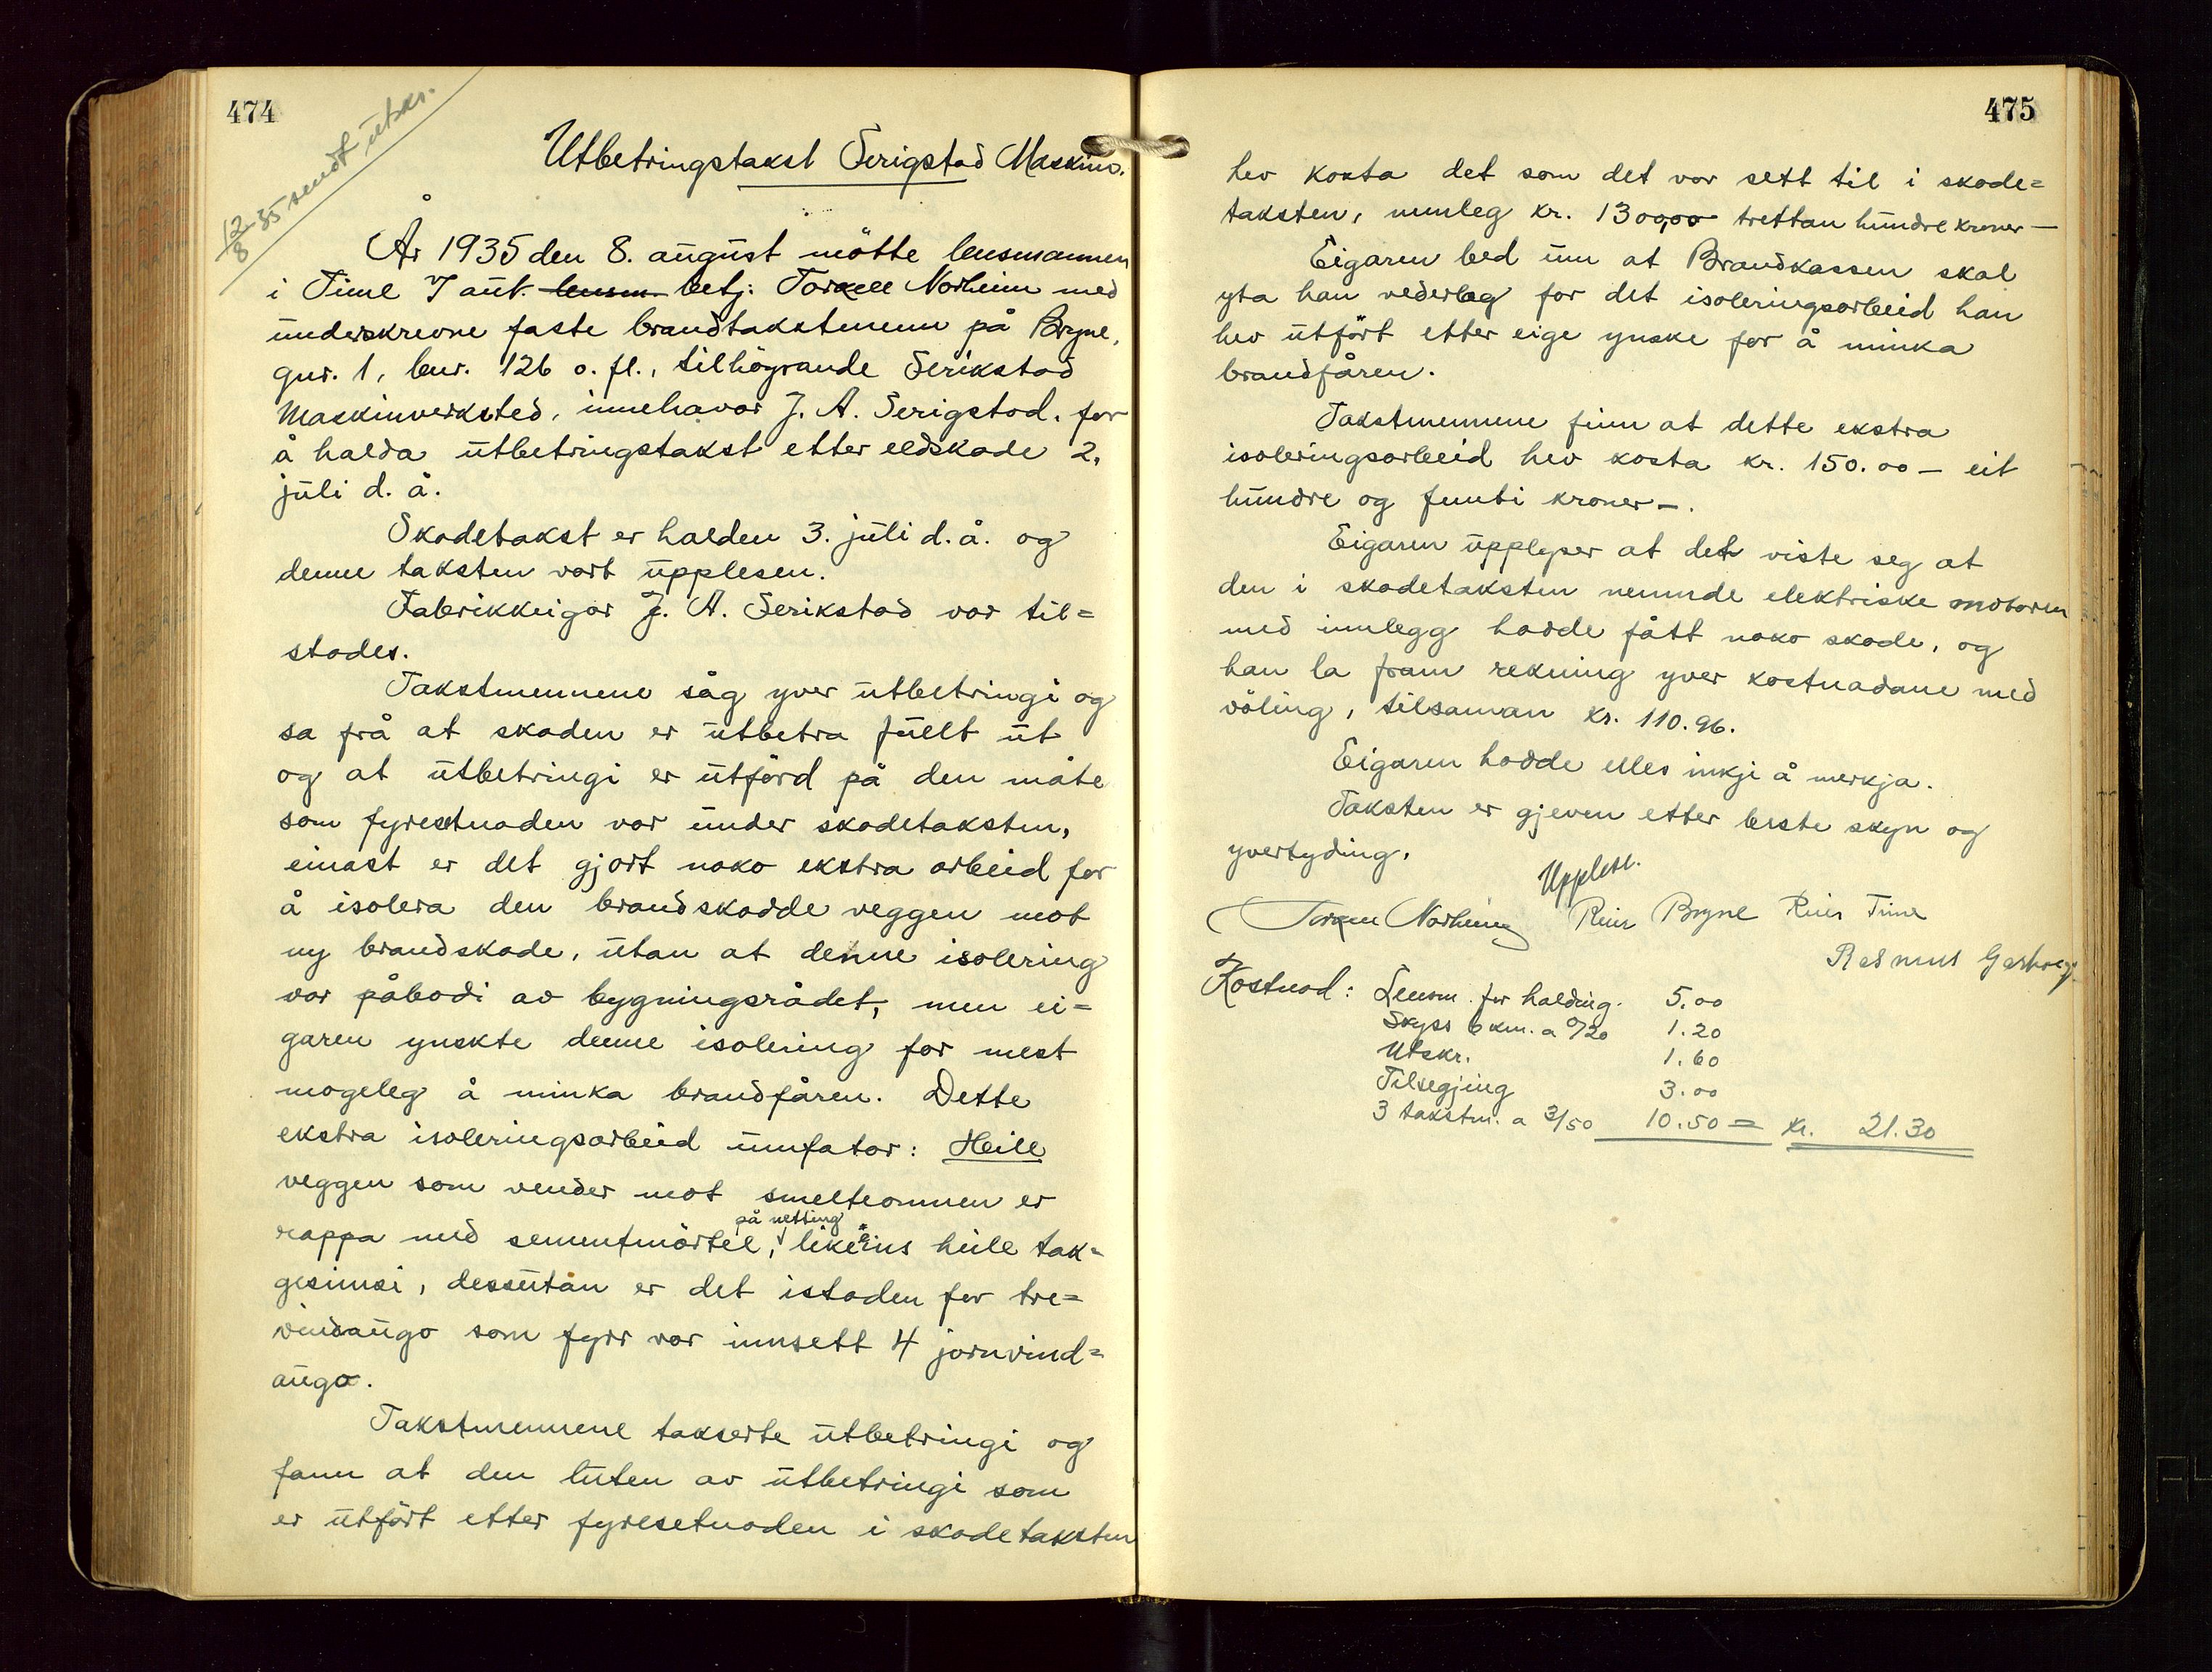 474
12/8-35 sendt utskr.
Utbetringstakst Serigstad Maskinv.
År 1935 den 8. august mötte lensmannen
i Time J aut. lensm. betj. Torkell Norheim med
underskrevne faste brandtakstmenn på Bryne,
gnr. 1, bnr. 126 o. fl., tilhöyrande Serikstad
Maskinverksted, innehavar J. A. Serigstad, for
å halda utbetringstakst etter eldskade 2.
juli d. å.
Skadetakst er halden 3. juli d. å. og
denne taksten vart upplesen.
Fabrikkeigar J. A. Serikstad var til=
stades.
Takstmennene såg yver utbetringi og
sa frå at skaden er utbetra fullt ut
og at utbetringi er utförd på den måte
som fyresetnaden var under skadetaksten,
einast er det gjort noko ekstra arbeid for
å isolera den brandskadde veggen mot
ny brandskade, utan at denne isolering
var påbodi av bygningsrådet, men ei=
garen ynskte denne isolering for mest
mogeleg å minka brandfåren. Dette
ekstra isoleringsarbeid umfatar: Heile
veggen som vender mot smelteomnen er
rappa med sementmörtel, på netting likeeins heile tak=
gesimsi, dessutan er det istaden for tre=
vindaugo som fyrr var innsett 4 jarnvind=
augo.
Takstmennene takserte utbetringi og
fann at den luten av utbetringi som
er utfört etter fyresetnaden i skadetaksten
475
hev kosta det som det var sett til i skade=
taksten, nemleg kr. 1300,00 trettan hundre kroner—
Eigaren bed um at Brandkassen skal
yta han vederlag for det isoleringsarbeid han
hev utfört etter eige ynske for å minka
brandfåren.
Takstmennene finn at dette ekstra
isoleringsarbeid hev kosta kr. 150.00 — eit
hundre og femti kroner—.
Eigaren upplyser at det viste seg at
den i skadetaksten nemnde elektriske motoren
med innlegg hadde fått noko skade, og
han la fram rekning yver kostnadane med
völing, tilsaman kr. 110.96.
Eigaren hadde elles inkje å merkja.
Taksten er gjeven etter beste skyn og
yvertyding.
Upplese.
Torkell Norheim Reier Bryne Reier Time
Rasmus Garborg
Kostnad: Lensm. for halding. 5.00
Skyss 6 km. a 0/20 1.20
Utskr. 1.60
Tilsegjing 3.00
3 takstm. a 3/50 10.50 = kr. 21.30